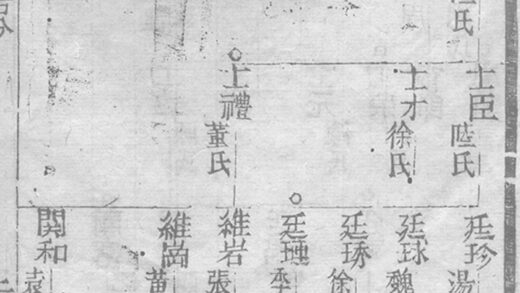 士臣
陸氏
士才
徐氏
士禮
董氏
廷珍
湯
廷球
魏
廷琢
徐
廷
維岩
張
維崗
黄
開和
袁